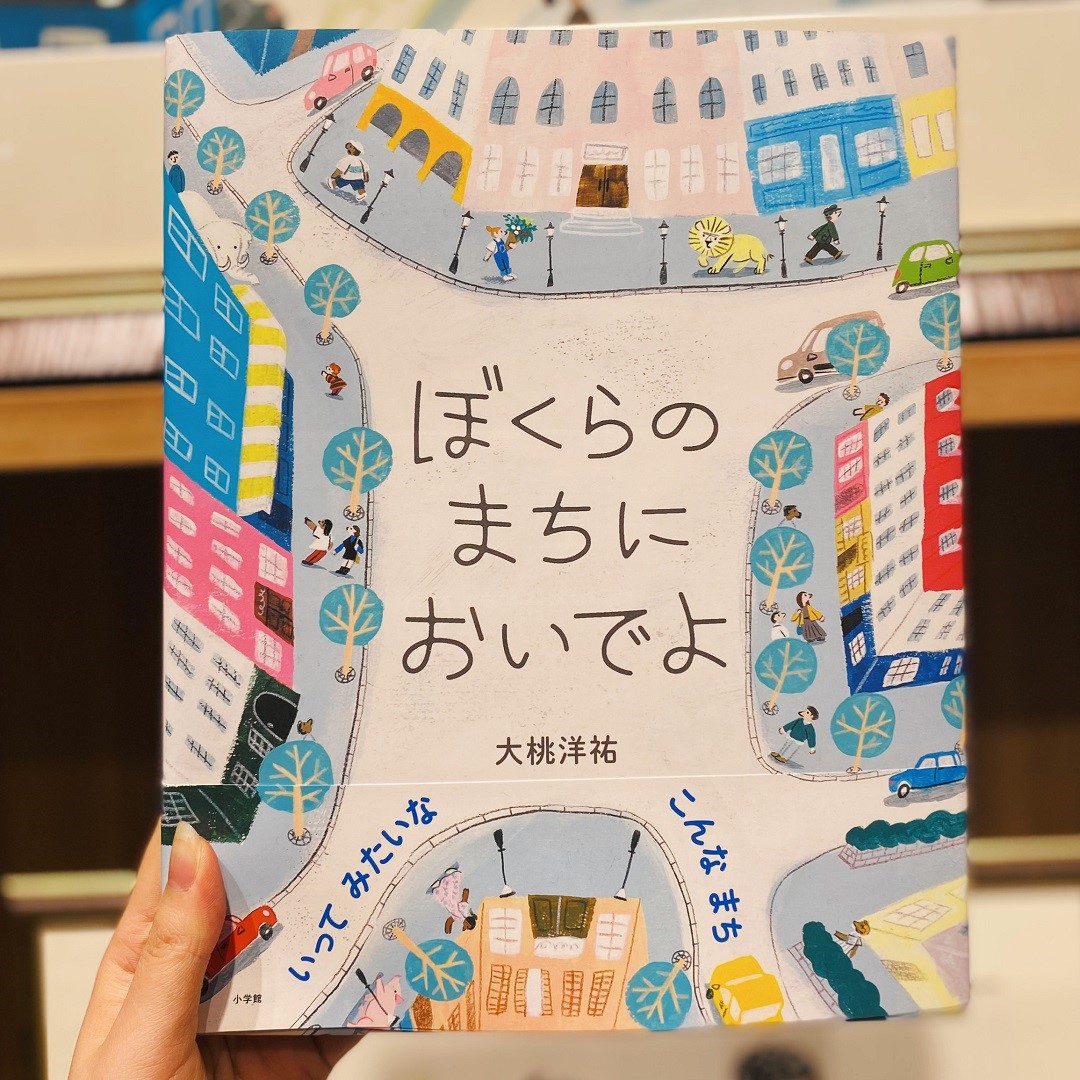 ぼくらの
まちに
おいでよ
大桃洋祐
いって みたいな
こんな まち
小学館